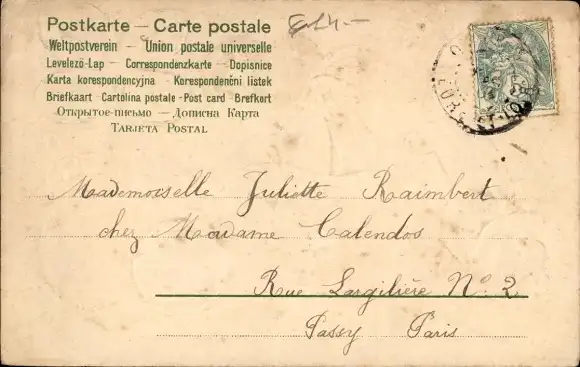 Postkarte — Carte postale
Weltpostverein — Union postale universelle
Levelező-Lap — Correspondenzkarte — Dopisnice
Karta korespondencyjna — Korespondenční listek
Briefkaart - Cartolina postale - Post card - Brefkort
Открытое-письмо — Дописна Карта
Tarjeta Postal
Mademoiselle Juliette Raimbert
chez Madame Calendos
Rue Largilière No. 2
Passy Paris